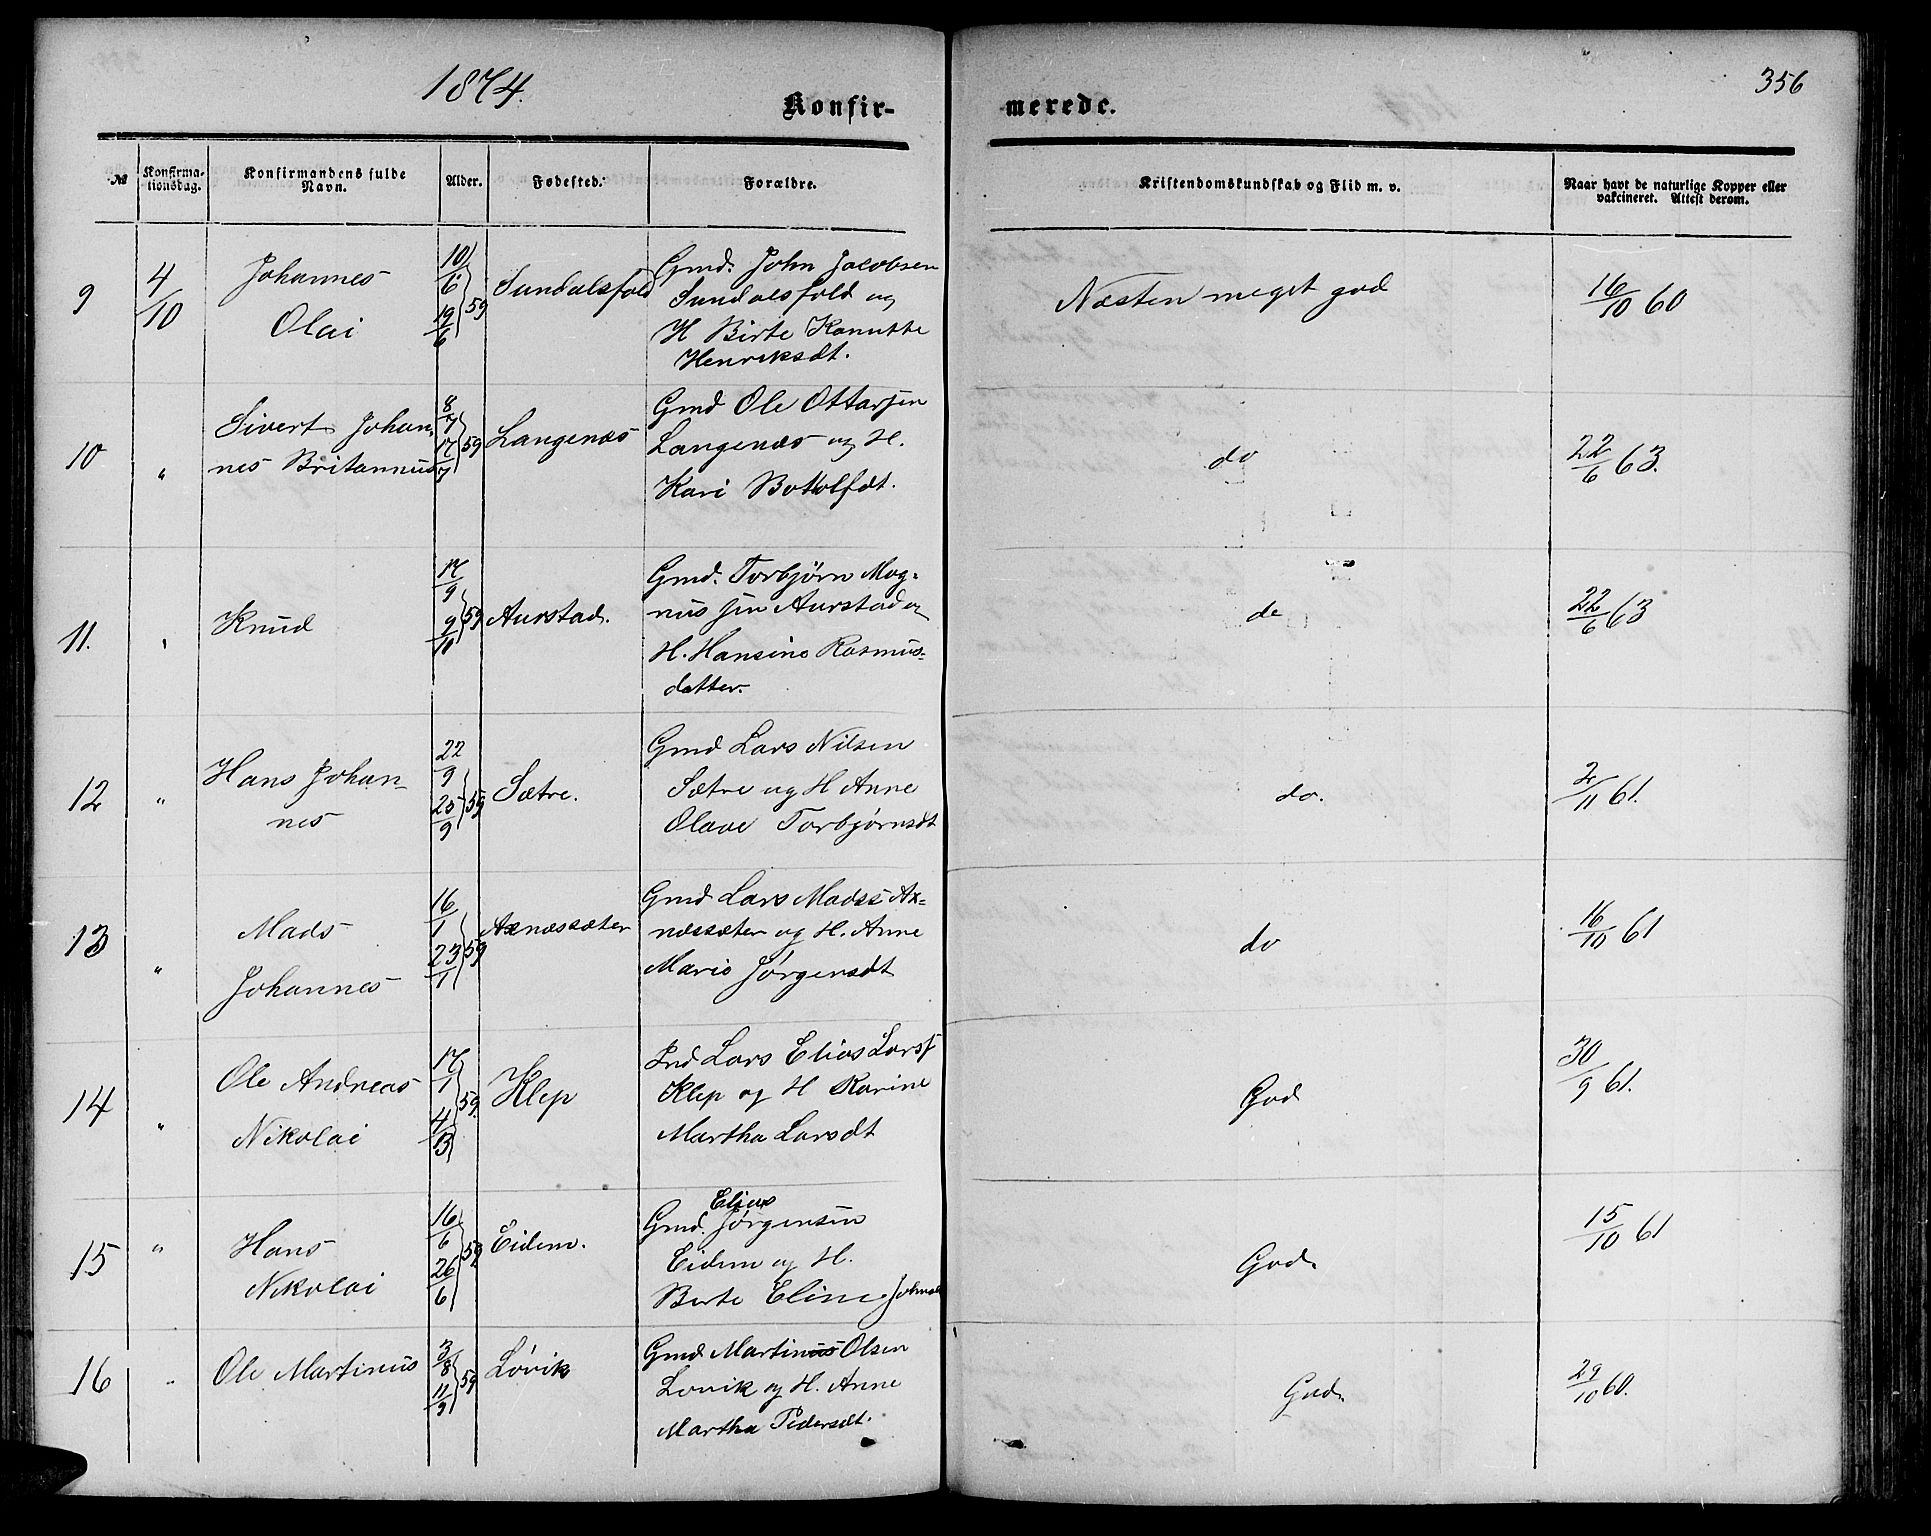 1874.
Konfir-
merede.
356
№
Konfirma-
tionsdag.
Konfirmandens fulde
Navn.
Alder.
Fødested.
Forældre.
Kristendomskundskab og Flid m. v.
Naar havt de naturlige Kopper eller
vakcineret. Attest derom.
9
4/10
Johannes
Olai
10/6 19/6 59
Sundalsfold
Gmd. John Jacobsen
Sundalsfold og
H Birte Kanutte
Henriksdt.
Næsten meget god
16/10 60
10
"
Sivert Johan-
nes Britannus
8/7 17/7 59
Langenæs
Gmd Ole Ottarsen
Langenæs og H.
Kari Bottolfdt.
do
22/6 63.
11.
"
Knud
17/9 9/10 59
Aurstad.
Gmd. Torbjørn Mag-
nussen Aurstad og
H. Hansine Rasmus-
datter.
do
22/6 63
12
"
Hans Johan-
nes
22/9 25/9 59
Sætre.
Gmd Lars Nilsen
Sætre og H Anne
Olave Torbjørnsdt
do.
2/11 61.
13
"
Mads
Johannes
16/1 23/1 59
Axnæssæter
Gmd Lars Madss Ax-
næssæter og H. Anne
Marie Jørgensdt
do
16/10 61
14
"
Ole Andreas
Nikolai
17/1 4/13 59.
Klep
Ind Lars Elias Larss
Klep og H Karine
Martha Larsdt
God
30/9 61.
15
"
Hans
Nikolai
16/6 26/6 59
Eidem.
Elias
Gmd. Jørgensen
Eidem og H.
Berte Eline Johnsd
God.
15/10 61
16
"
Ole Martinus
3/8 11/9 59
Løvik
Gmd Martinus Olsen
Lovik og H. Anne
Martha Pedersdt.
God.
29/10 60.